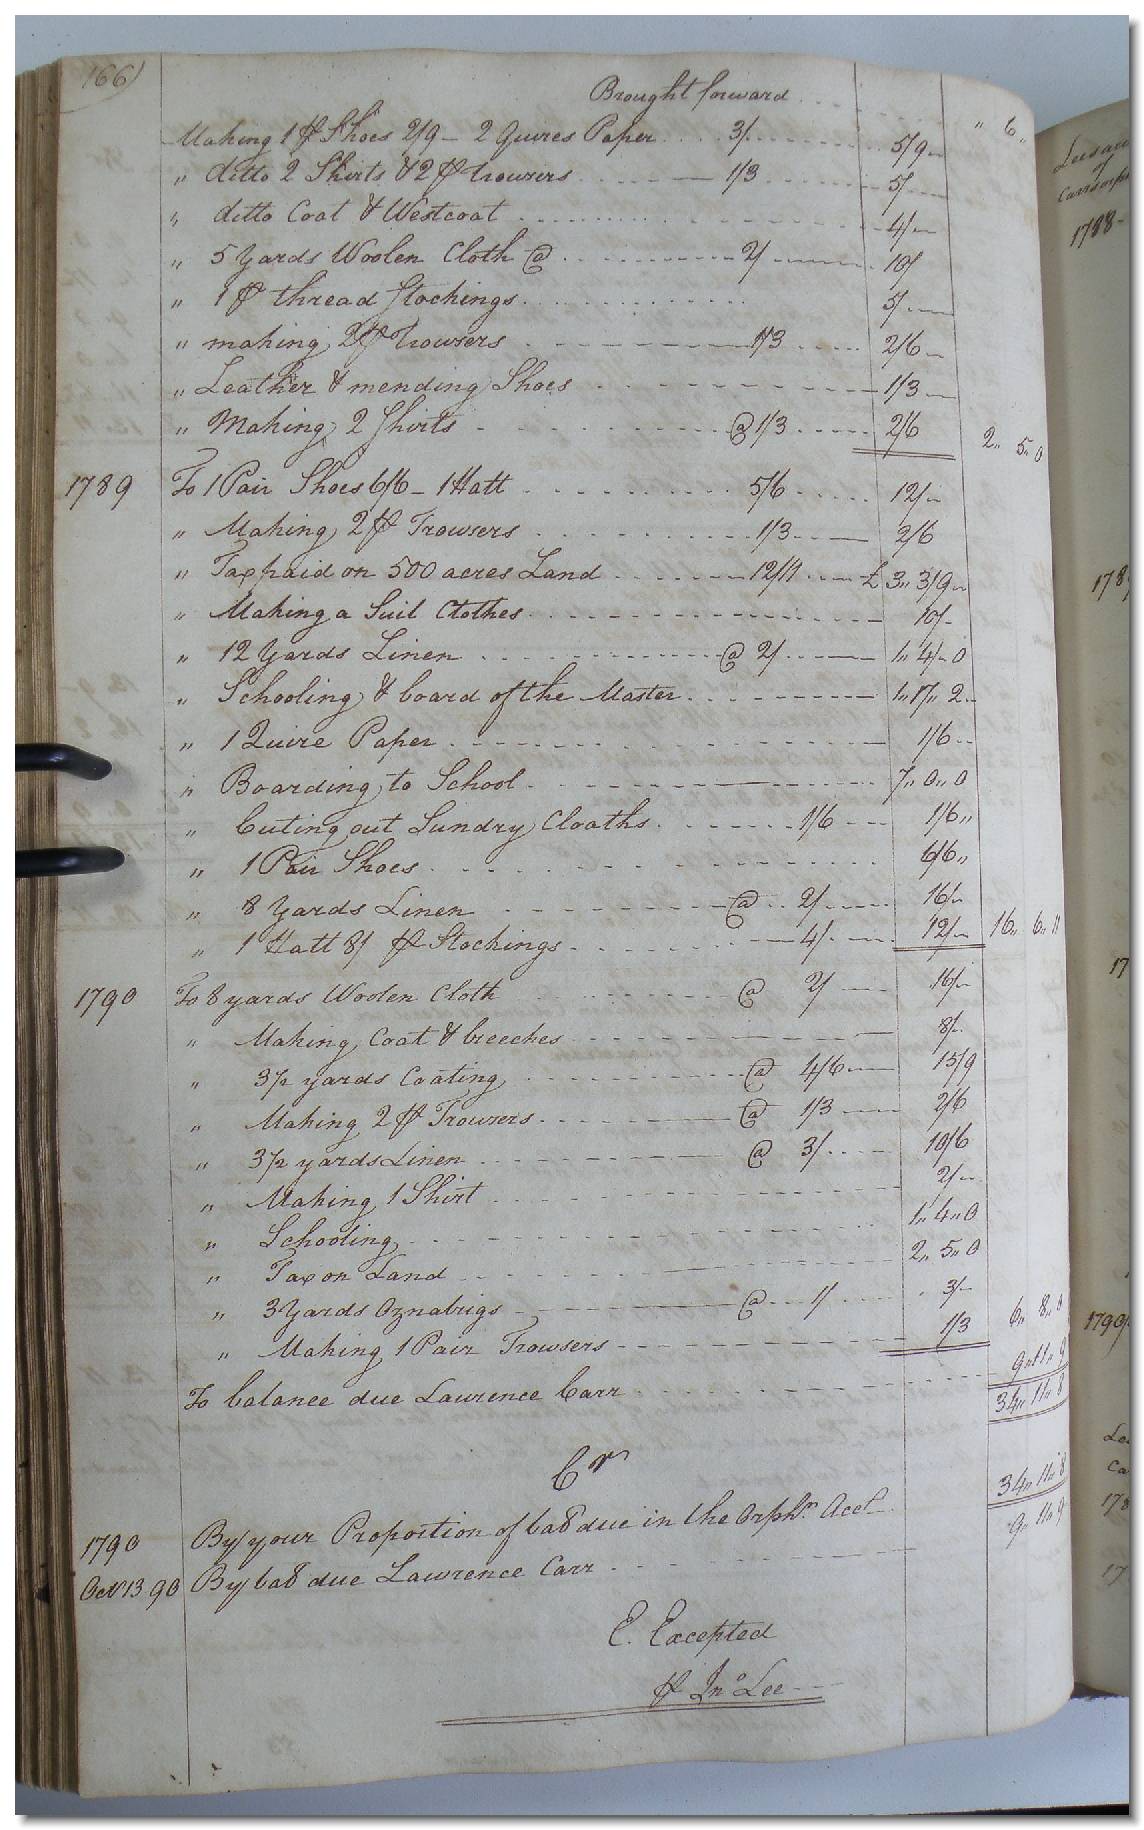 166)
Brought forward .... " 6 "
Making 1 pr Shoes 2/9 - 2 Quires Paper .... 3/. .... 5/9
" ditto 2 Shirts & 2 pr trowsers .... 1/3 .... 5/
" ditto Coat & Westcoat .... 4/
" 5 Yards Woolen Cloth @ .... 2/ .... 10/
" 1 pr thread Stockings .... 5/
" making 2 pr Trowsers .... 1/3 .... 2/6
" Leather & mending Shoes .... 1/3
" Making 2 Shirts .... @ 1/3 .... 2/6 2 " 5 " 0
1789 To 1 Pair Shoes 6/6 - 1 Hatt .... 5/6 .... 12/
" Making 2 pr Trowsers .... 1/3 .... 2/6
" Tax paid on 500 acres Land .... 12/9 .... £ 3 " 3/9
" Making a Suit Clothes .... 10/
" 12 Yards Linen .... @ 2/ .... 1 " 4 " 0
" Schooling & board of the Master .... 1 " 17 " 2
" 1 Quire Paper .... 1/6
" Boarding to School .... 7 " 0 " 0
" Cuting out Sundry Cloaths .... 1/6 .... 1/6 "
" 1 Pair Shoes .... 6/6 "
" 8 Yards Linen .... @ 2/ .... 16/
" 1 Hatt 8/ pr Stockings .... 4/ .... 12/ 16 " 6 " 11
1790 To 8 yards Woolen Cloth .... @ 2/ .... 16/
" Making Coat & breeches .... 8/
" 3 1/2 yards Coating .... @ 4/6 .... 15/9
" Making 2 pr Trowsers .... @ 1/3 .... 2/6
" 3 1/2 yards Linen .... @ 3/ .... 10/6
" Making 1 Shirt .... 2/
" Schooling .... 1 " 4 " 0
" Tax on Land .... 2 " 5 " 0
" 3 Yards Oznabrigs .... @ 1/ .... 3/
" Making 1 Pair Trowsers .... 1/3 6 " 8 " 0
To balance due Lawrence Carr .... 9 " 11 " 9
34 " 11 " 8
Cr
1790 By your Proportion of bal due in the Orphn Acct 34 " 11 " 8
Oct 13 90 By bal due Lawrence Carr .... 9 " 11 " 9
E. Excepted
pr Jno Lee
1788
1790